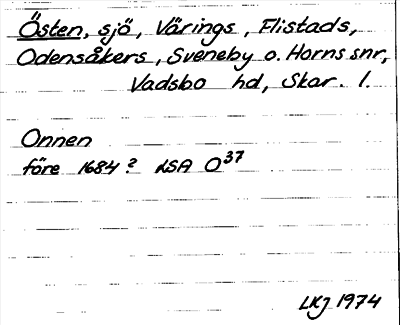 Östen, sjö, Värings, Flistads,
Odensåkers, Sveneby o. Horns snr,
Vadsbo hd, Skar. l.
Onnen
före 1684? LSA O37
LKJ 1974